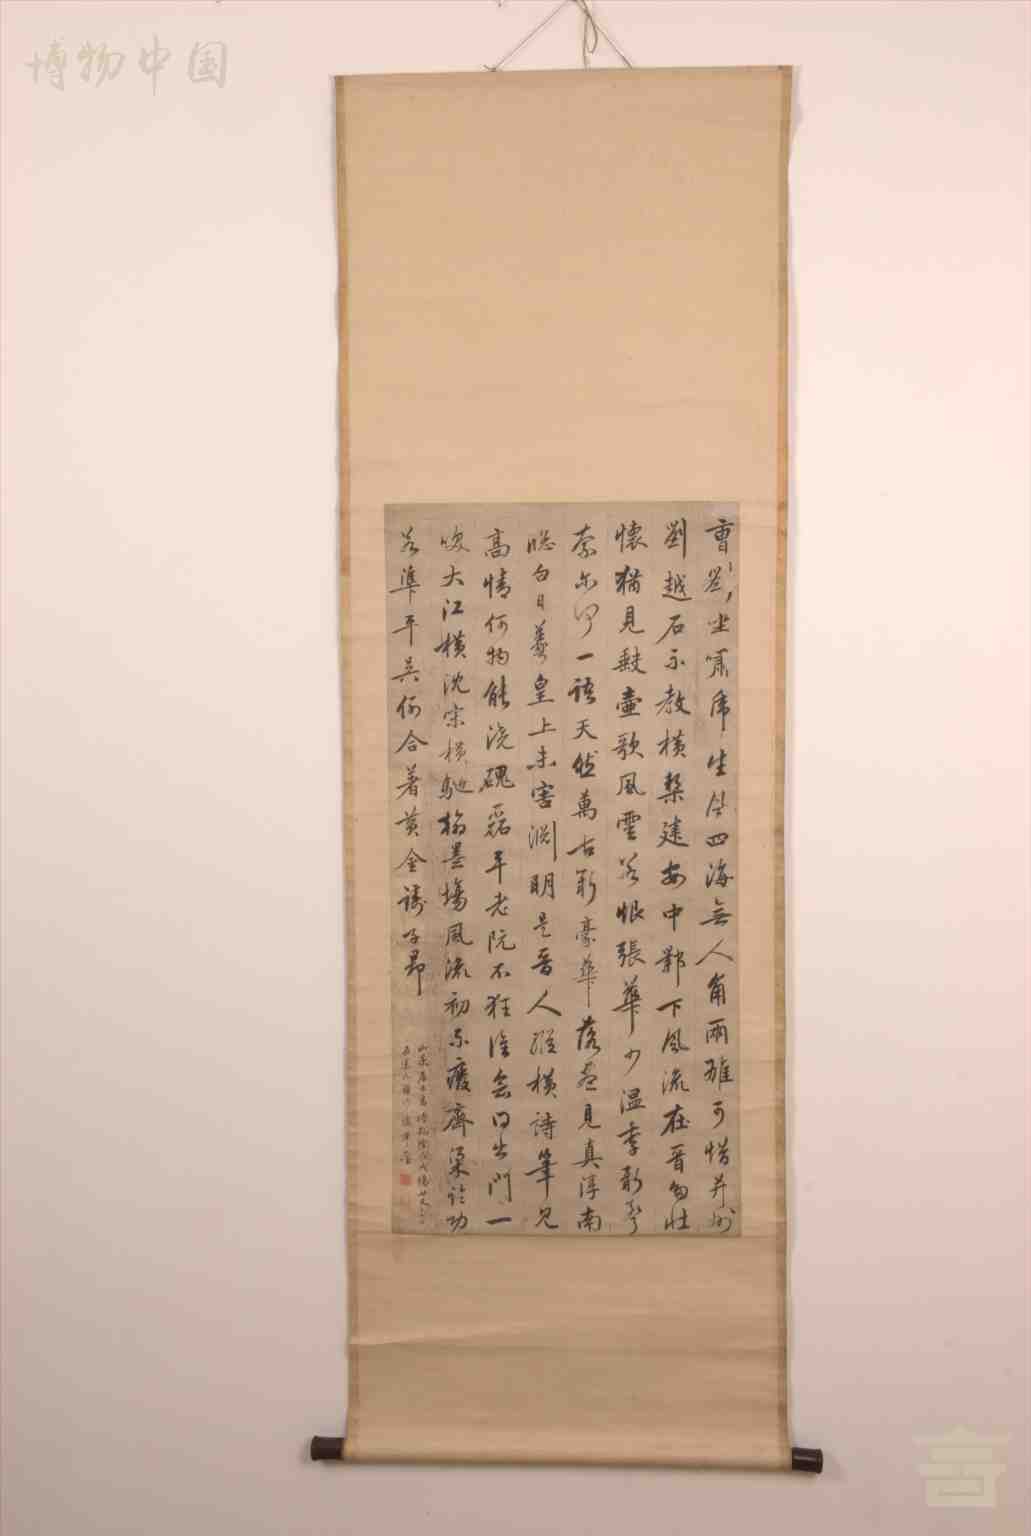 博物中国
曹劉坐嘯虎生風四海無人角兩雄可惜并州
劉越石不教橫槊建安中鄴下風流在晉多壯
懷猶見缺壺歌風雲若恨張華少溫李新聲
奈尔何一語天然萬古新豪華落盡見真淳南
牕白日羲皇上未害淵明是晉人縱橫詩筆見
高情何物能澆磈磊平老阮不狂誰會得出門一
笑大江橫沈宋橫馳翰墨場風流初不廢齊梁論功
若準平吳例合著黃金鑄子昂